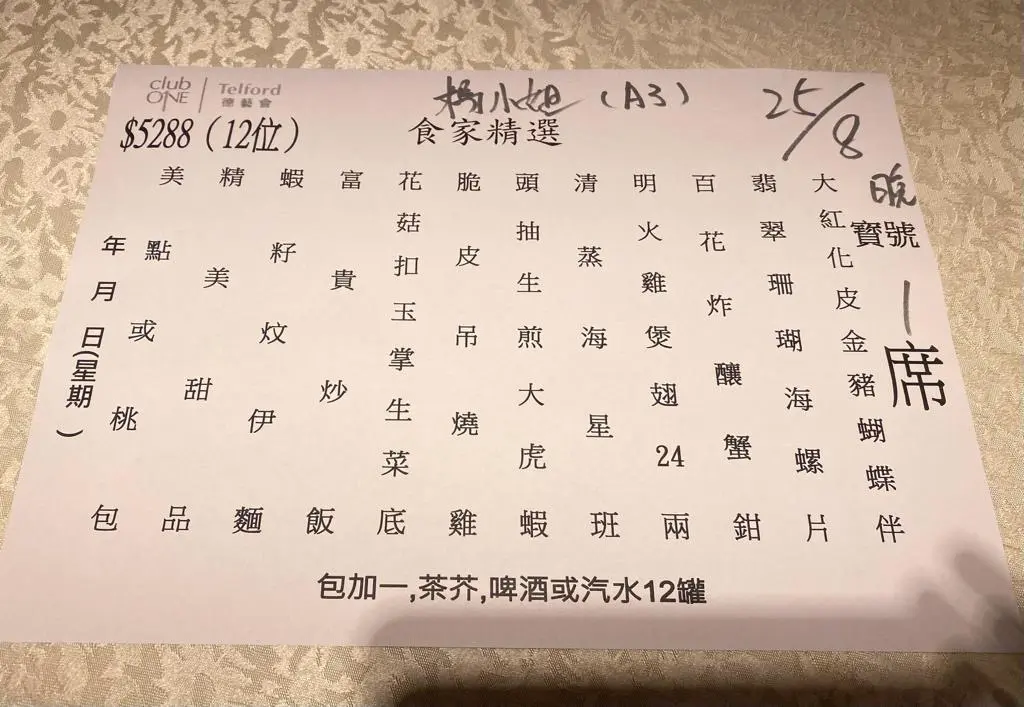 club ONE | Telford 德藝會
楊小姐 (A3)
25/8
晚
$5288 (12位)
食家精選
寶號 一席
大紅化皮金豬蝴蝶伴
翡翠珊瑚海螺片
百花炸釀蟹鉗
明火雞煲翅24兩
清蒸海星班
頭抽生煎大虎蝦
脆皮吊燒雞
花菇扣玉掌生菜底
富貴炒飯
蝦籽炆伊麵
精美甜品
美點或桃包
年月日(星期 )
包加一,茶芥,啤酒或汽水12罐